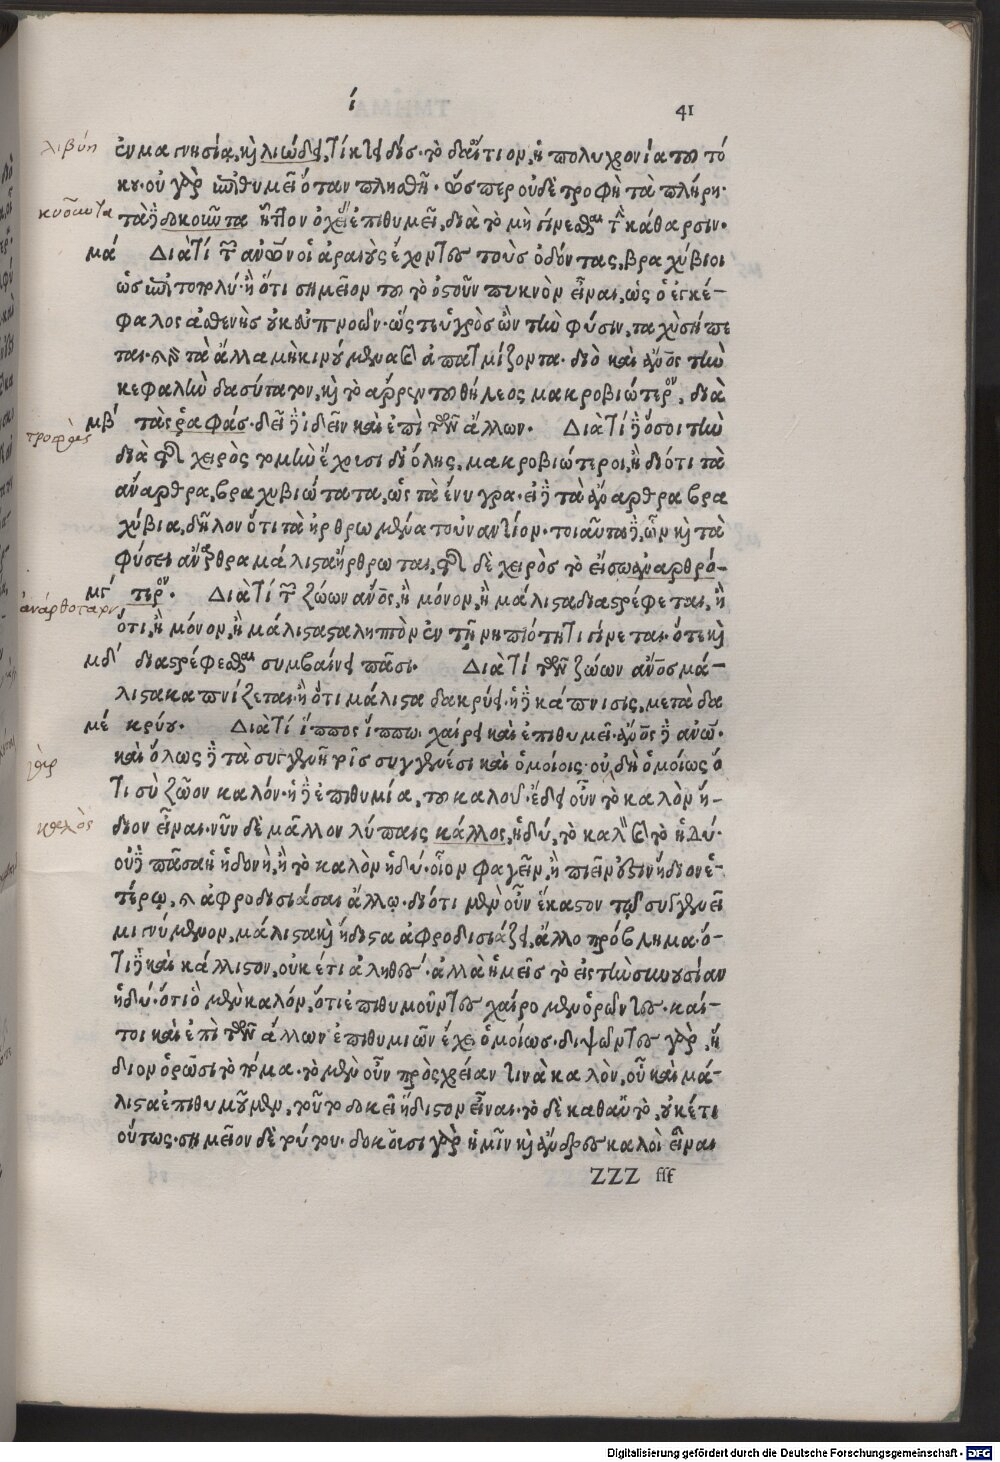 ί 41
λιβύη
ἐν μαγνησίᾳ, καὶ λιώδει, τίκτει δίς. τὸ δ' αἴτιον, ἡ πολυχρονία του τό
κου. οὐ γὰρ ἐπιθυμεῖ ὅταν πληθῇ. ὥσπερ οὐδὲ τροφὴ τὰ πλήρη.
κυοῦντα
τὰ δὲ δοκοῦντα ἧττον ὀχεία ἐπιθυμεῖ, διὰ τὸ μὴ γίνεσθαι τὴν κάθαρσιν.
μά Διὰ τί τῶν ἀνθρώπων οἱ ἀραιοὺς ἔχοντες τοὺς ὀδόντας, βραχύβιοι
ὡς ἐπιτοπολύ. ἢ ὅτι σημεῖον του τὸ ὀστοῦν πυκνὸν εἶναι, ὡς ὁ ἐγκέ-
φαλος ἀσθενὴς οὐκ εὔπνοων. ὥστε ὑγρὸς ὢν τὴν φύσιν, ταχὺ σήπε
ται. καὶ γὰρ τὰ ἄλλα μὴ κινούμενα καὶ ἀπατμίζοντα. διὸ καὶ ἄνθρωπος τὴν
κεφαλὴν δασύτατον, καὶ τὸ ἄρρεν του θήλεος μακροβιώτερον, διὰ
μβ́ τὰς ῥαφάς. δεῖ δὲ ἰδεῖν καὶ ἐπὶ τῶν ἄλλων. Διὰ τί δὲ ὅσοι τὴν
τροφὰς
διὰ τῆς χειρὸς τομὴν ἔχουσι δι' ὅλης, μακροβιώτεροι, ἢ διότι τὰ
ἄναρθρα, βραχυβιώτατα, ὡς τὰ ἔνυγρα. εἰ δὲ τὰ ἄναρθρα βρα
χύβια, δῆλον ὅτι τὰ ἠρθρωμένα τοὐναντίον. τοιαῦτα δὲ, ὧν καὶ τὰ
φύσει ἄναρθρα μάλιστα ἤρθρωται, τῆς δὲ χειρὸς τὸ εἴσω ἀναρθρό-
μγ́ τερον. Διὰ τί τῶν ζώων ἄνθρωπος, ἢ μόνον, ἢ μάλιστα διαστρέφεται, ἢ
ἀναρθρότατον
ὅτι, ἢ μόνον, ἢ μάλιστα ἐπίληπτον ἐν τῇ νηπιότητι γίνεται. ὅτε καὶ
μδ́ διαστρέφεσθαι συμβαίνει πᾶσι. Διὰ τί τῶν ζώων ἄνθρωπος μά-
λιστα καπνίζεται. ἢ ὅτι μάλιστα δακρύει. ἡ δὲ κάπνισις, μετὰ δα
μέ κρύου. Διὰ τί ἵππος ἵππῳ χαίρει καὶ ἐπιθυμεῖ. ἄνθρωπος δὲ ἀνθρώπῳ.
καὶ ὅλως δὲ τὰ συγγενῆ τοῖς συγγενέσι καὶ ὁμοίοις. οὐ δὴ ὁμοίως ὁ
γὰρ
τι σὺ ζῶον καλόν. ἡ δὲ ἐπιθυμία, του καλοῦ. ἔδει οὖν τὸ καλὸν ἥ-
διον εἶναι. νῦν δὲ μᾶλλον λύπαις κάλλος, ἡδύ, τὸ καλὸν καὶ τὸ ἡδύ.
οὐ δὲ πᾶσα ἡ ἡδονὴ, ἢ τὸ καλὸν ἡδύ. οἷον φαγεῖν, ἢ πιεῖν οὐξινήδιον ἑ-
τέρῳ, καὶ ἀφροδισιάσαι ἄλλῳ. διότι μὲν οὖν ἕκαστον τῷ συγγενεῖ
μιγνύμενον, μάλιστα καὶ ἥδιστα ἀφροδισιάζει, ἄλλο πρόβλημα. ὅ-
τι δὲ καὶ κάλλιστον, οὐκέτι ἀληθές. ἀλλὰ ἡμεῖς τὸ εἰς τὴν συνουσίαν
ἡδύ. ὅτι ὃ μὲν καλόν, ὅτι ἐπιθυμοῦντες χαίρομεν ὁρῶντες. καί-
τοι καὶ ἐπὶ τῶν ἄλλων ἐπιθυμιῶν ἔχει ὁμοίως. διψῶντες γὰρ, ἥ
διον ὁρῶσι τὸ πόμα. τὸ μὲν οὖν πρὸς χρείαν τινὰ καλὸν, οὗ καὶ μά-
λιστα ἐπιθυμοῦμεν, τοῦτο δοκεῖ ἥδιστον εἶναι. τὸ δὲ καθ' αὑτὸ, οὐκέτι
οὕτως. σημεῖον δὲ τούτου. δοκοῦσι γὰρ ἡμῖν καὶ ἄνδρες καλοὶ εἶναι
ZZZ iii